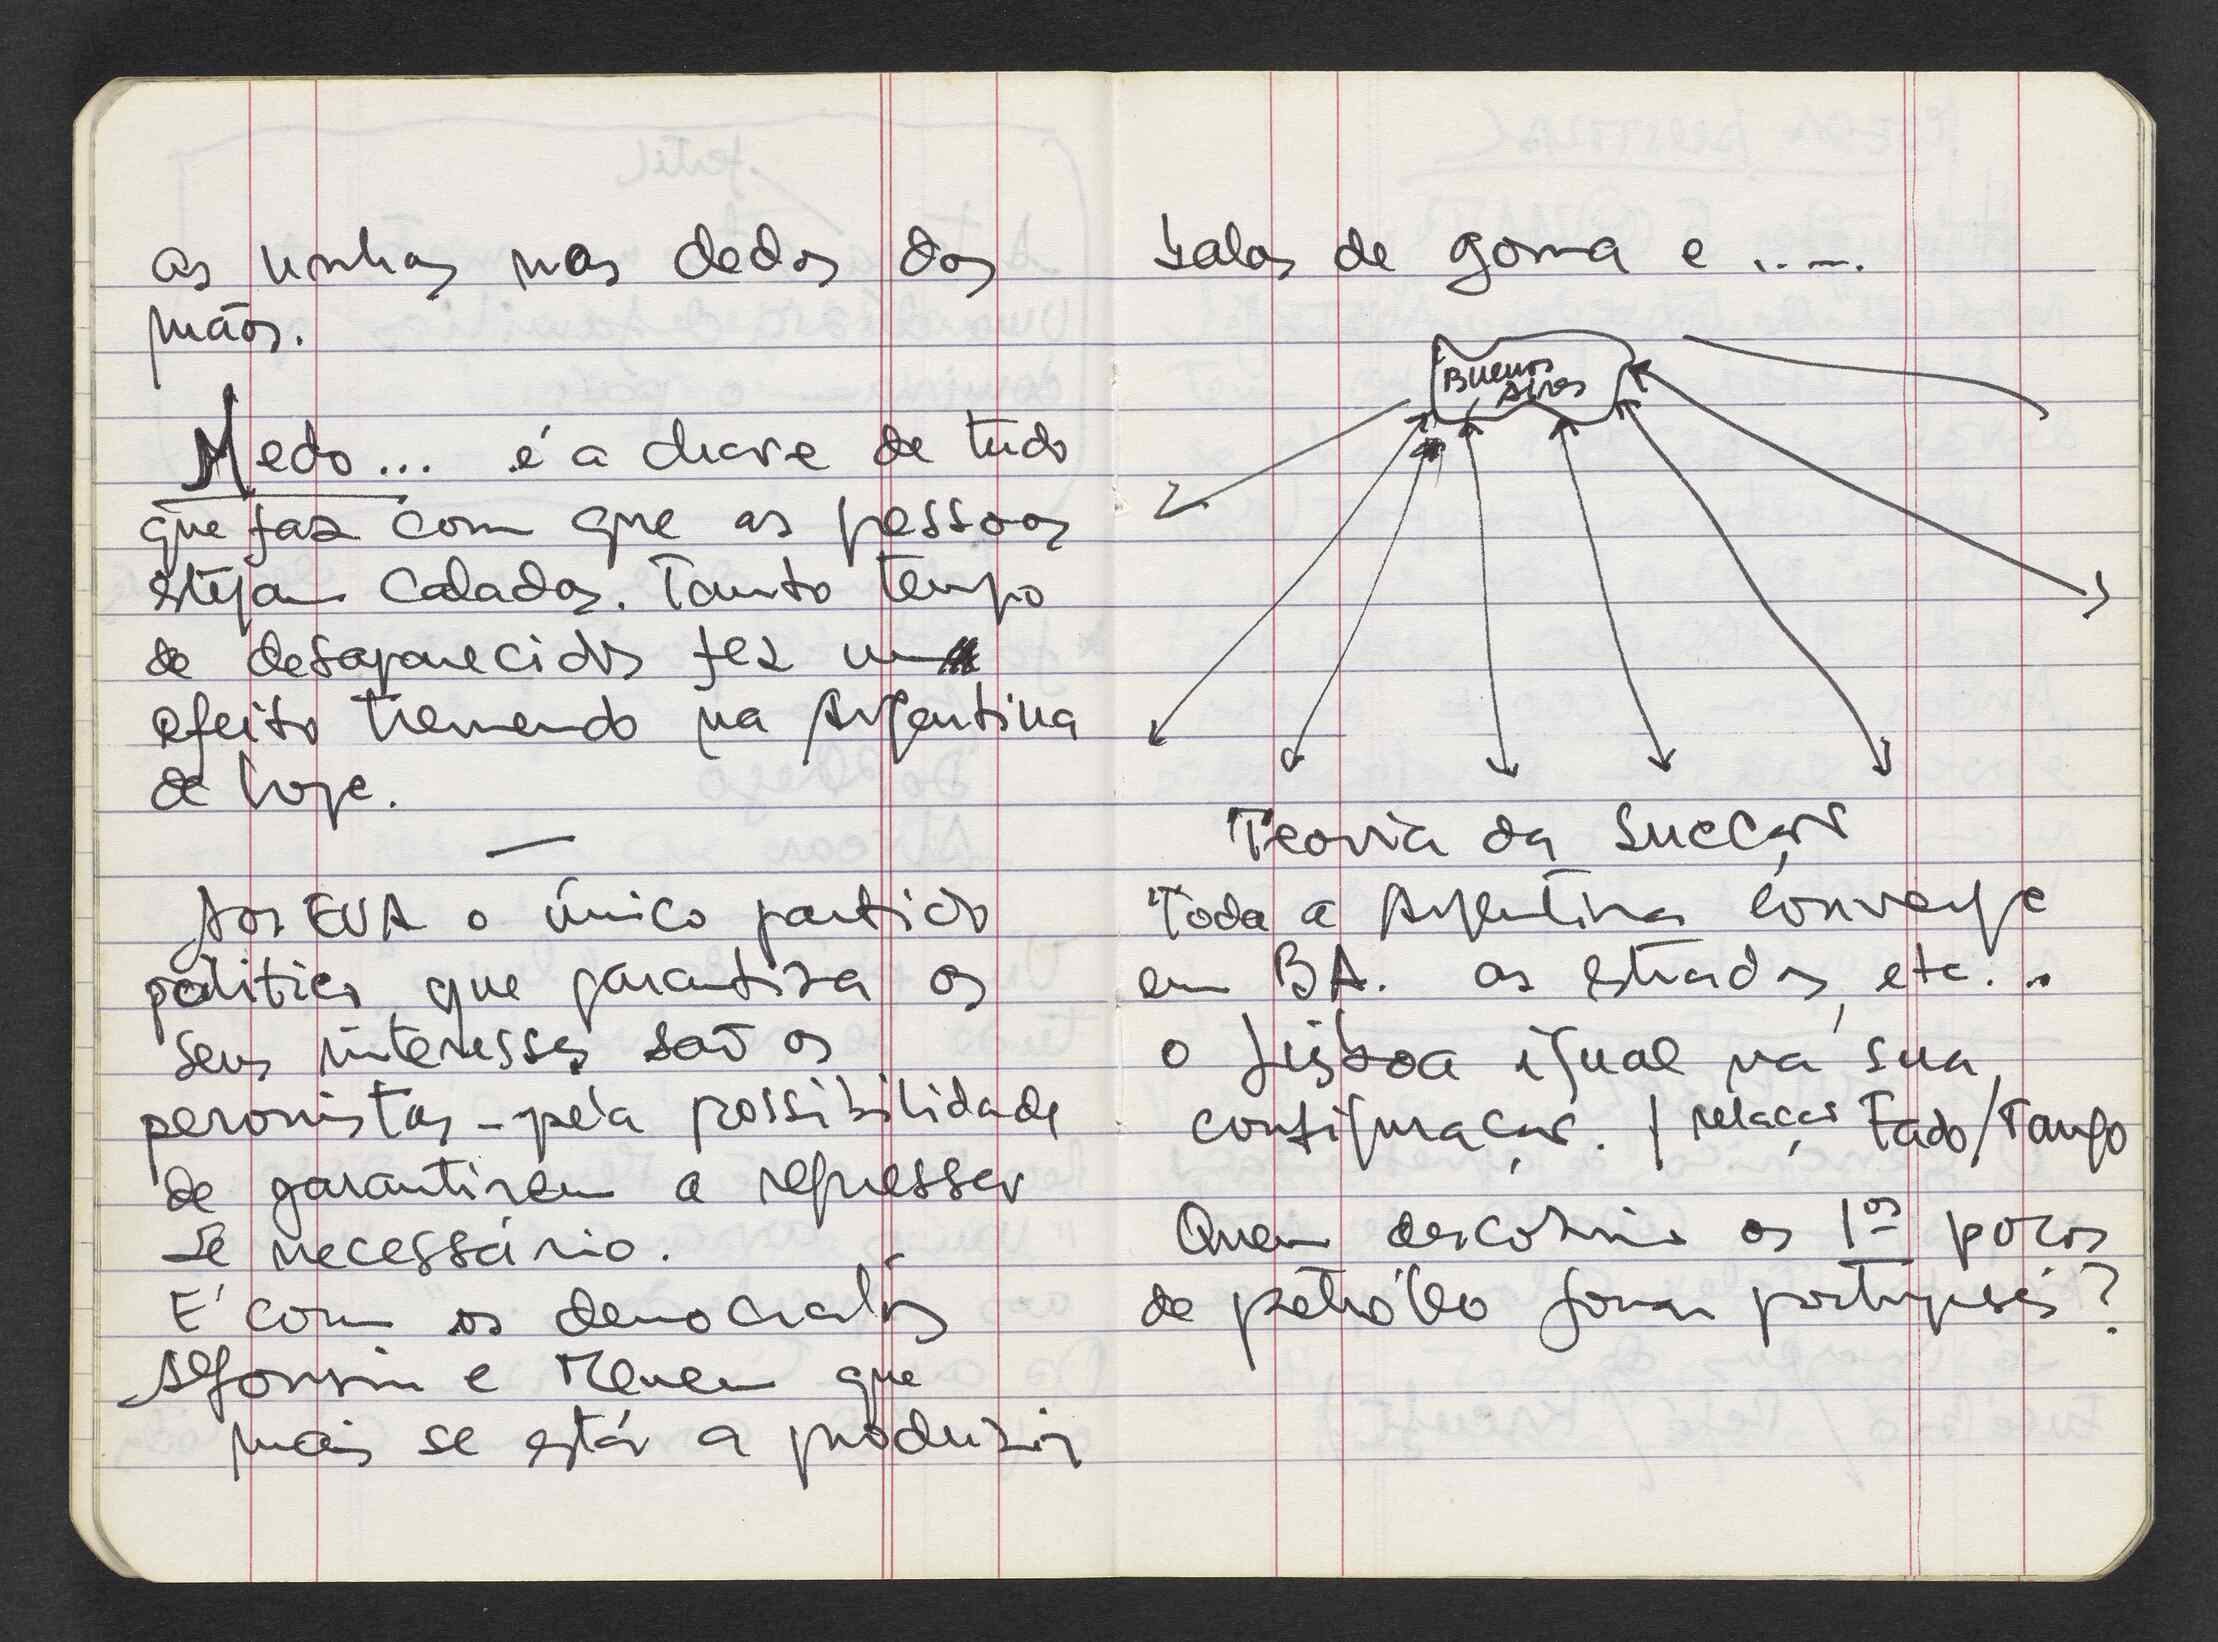 as unhas nas dedos das
mãos.
Medo... é a chave de tudo
que faz com que as pessoas
estejam caladas. Tanto tempo
de desaparecidos fez um
efeito tremendo na Argentina
de hoje.
—
Aos EUA o único partido
politico que garantiza os
seus interesses são os
peronistas - pela possibilidade
de garantirem a repressão
se necessário.
E' com os democratas
Alfonsin e Menem que
mais se está a produzir
balas de goma e .....
Buenos
Aires
Teoria da Sucção
Toda a Argentina converge
em BA. as estradas, etc...
o Lisboa igual na sua
configuração. / relação Fado/Tango
Quem descobriu os 1os poços
de petróleo foram portugueses?